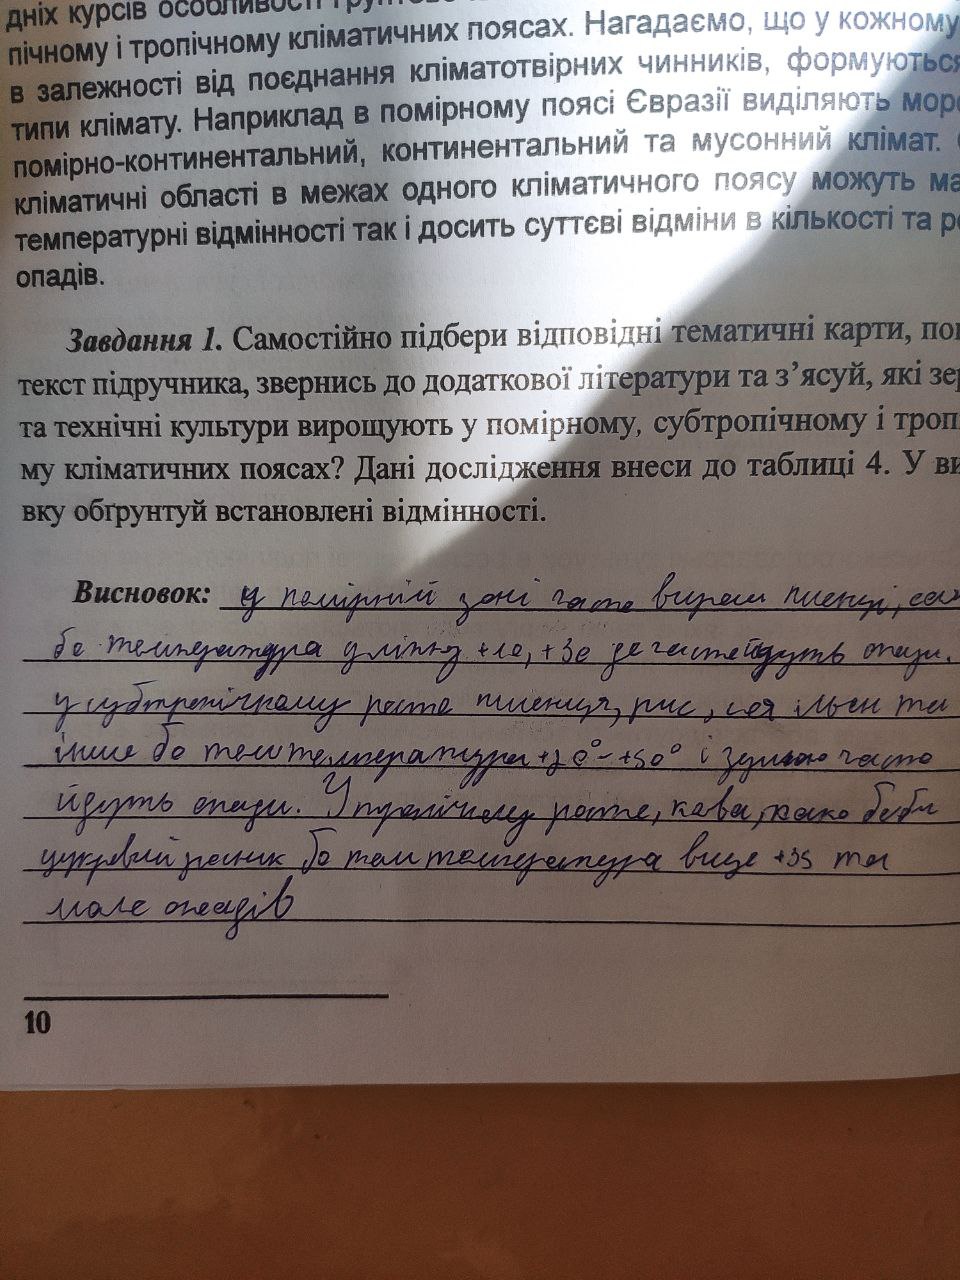 дніх курсів особливості ґрунтово
пічному і тропічному кліматичних поясах. Нагадаємо, що у кожному
в залежності від поєднання кліматотвірних чинників, формуються
типи клімату. Наприклад в помірному поясі Євразії виділяють морс
помірно-континентальний, континентальний та мусонний клімат.
кліматичні області в межах одного кліматичного поясу можуть ма
температурні відмінності так і досить суттєві відміни в кількості та ре
опадів.
Завдання 1. Самостійно підбери відповідні тематичні карти, пон
текст підручника, звернись до додаткової літератури та з’ясуй, які зер
та технічні культури вирощують у помірному, субтропічному і троп
му кліматичних поясах? Дані дослідження внеси до таблиці 4. У ви
вку обґрунтуй встановлені відмінності.
Висновок: у помірній зоні часто
бо температура улітку +10, +30 де йдуть опади.
у субтропічному росте пшениця, рис, соя льон та
інше бо там температура і зимою часто
йдуть опади. У тропічному росте, кава, какао
цукровий бо там температура вище +35 та
мало опадів
10